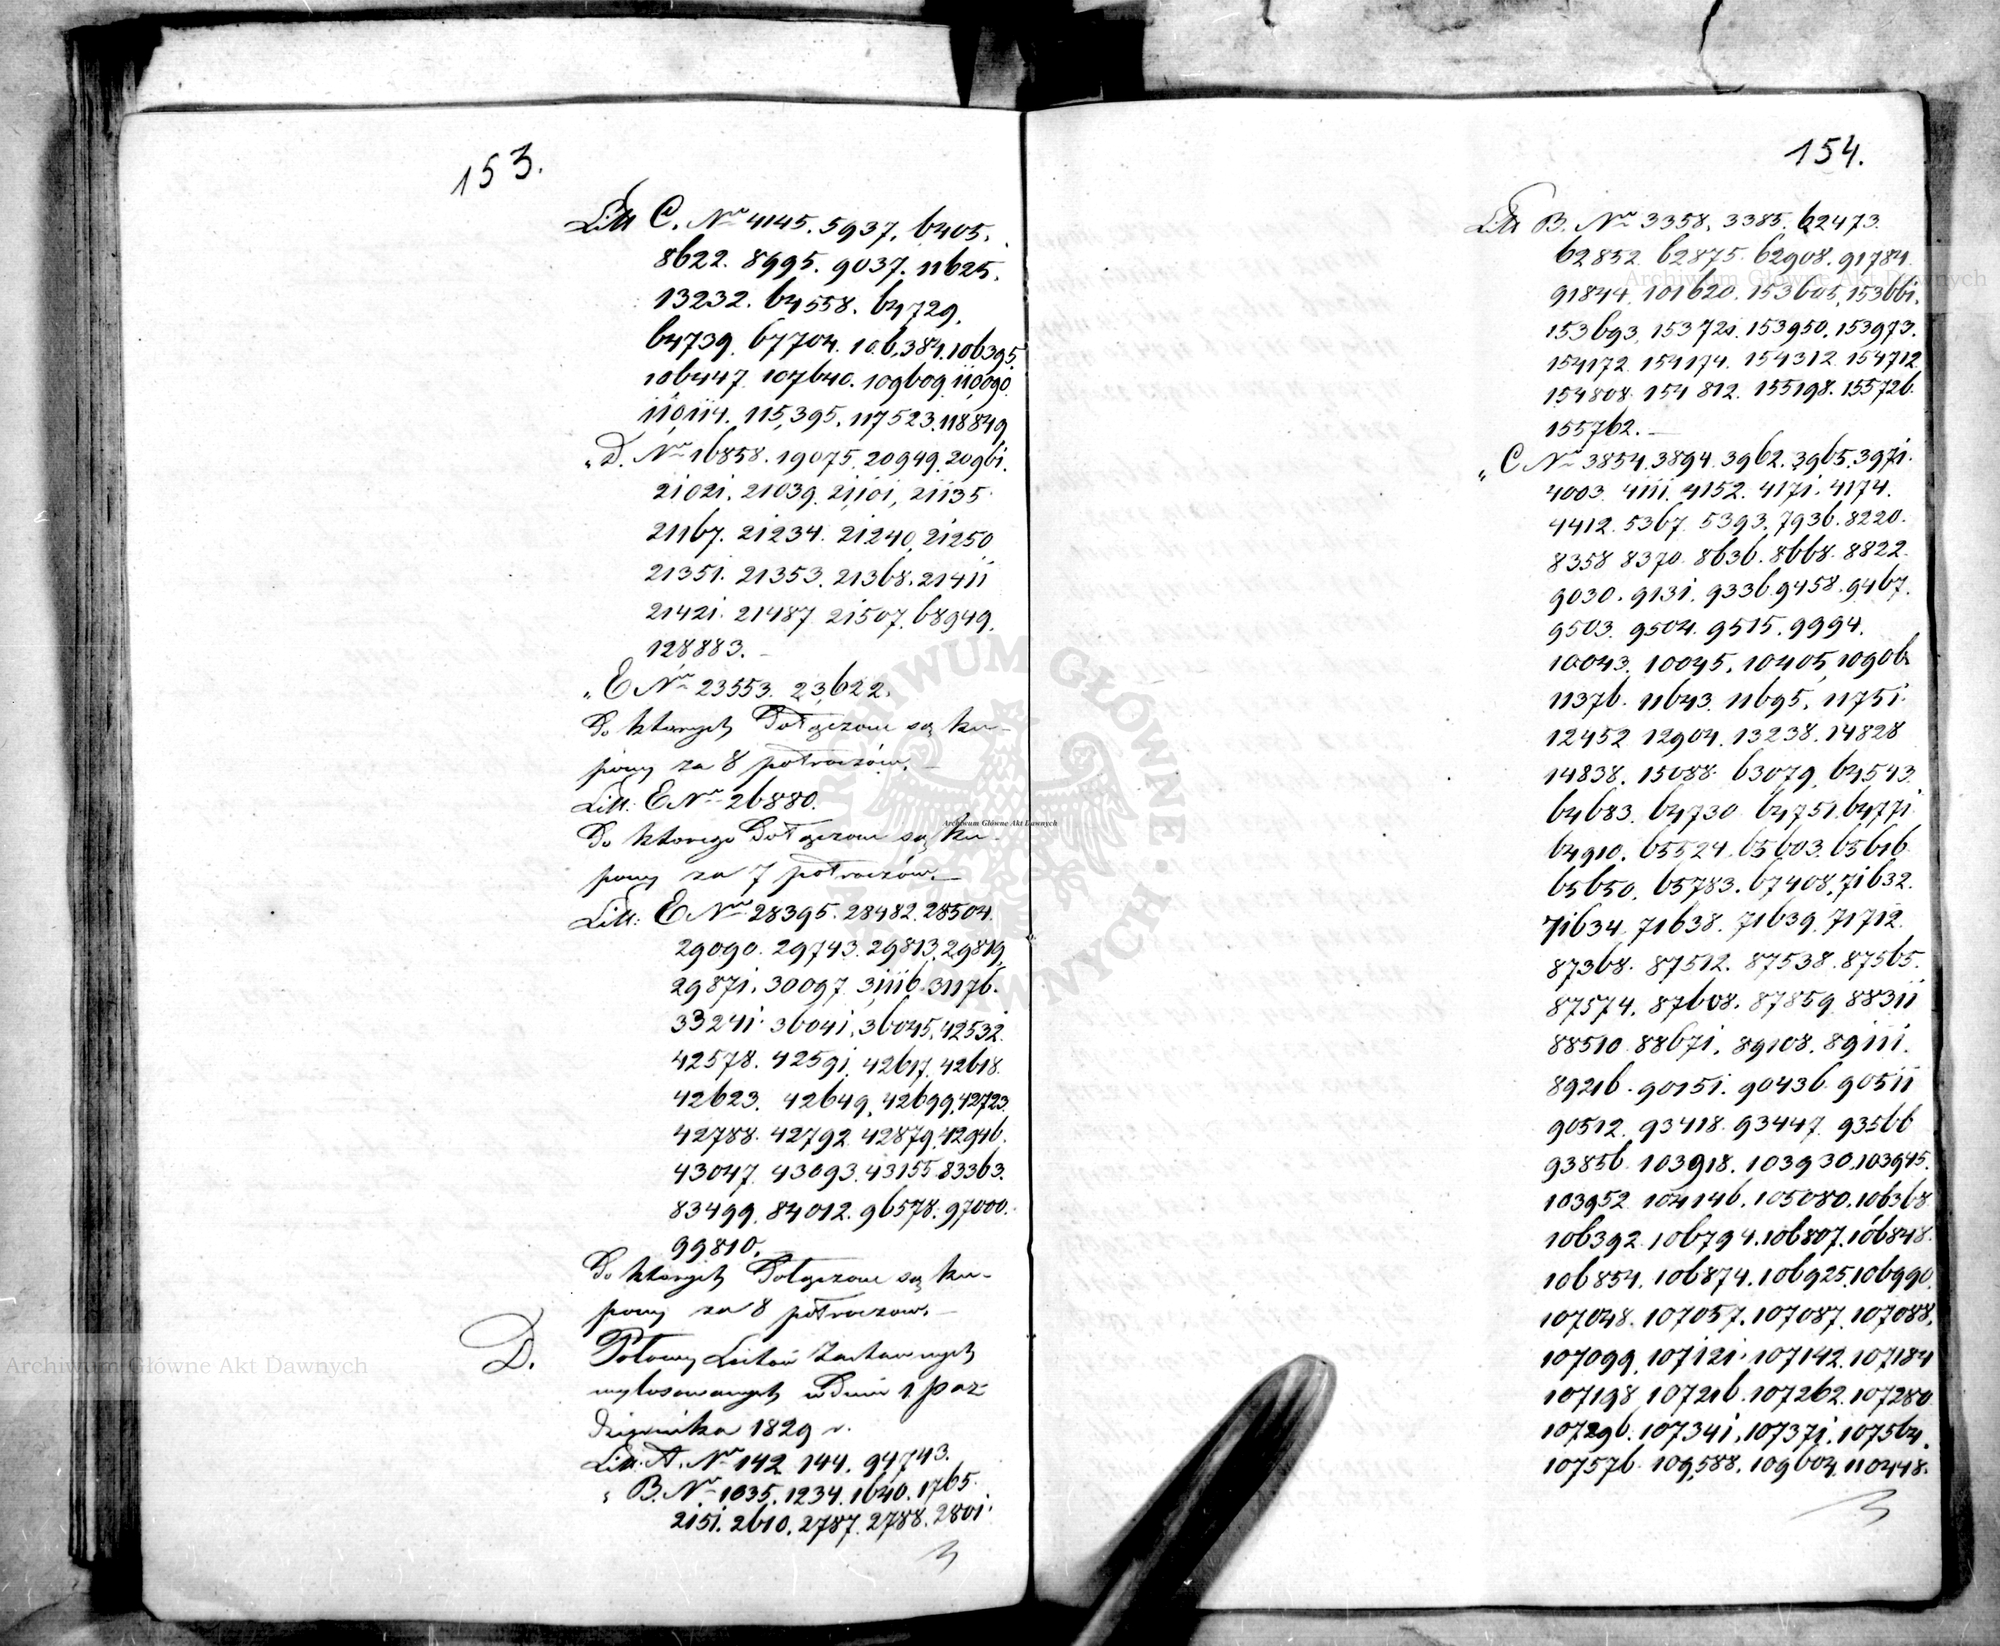 153.
Litt C. Nro 4145. 5937. 6405.
8622. 8995. 9037. 11625.
13232. 64558. 64729.
64739. 67704. 106,384. 106395.
106447. 107640. 109609. 110,090.
110,114. 115,395. 117523. 118849
„ D. Nro 16858. 19075. 20949. 20961.
21021. 21039. 21101. 21135.
21167. 21234. 21240. 21250
21351. 21353. 21368. 21411
21421. 21487. 21507. 68949.
128883. –
„ E Nro 23553. 23,622.
Do których Dołączone są ku-
pony za 8 półroczów. –
Litt: E Nro 26880.
Do którego Dołączone są ku-
pony za 7 półroczów. –
Litt: E Nro 28395. 28482. 28504.
29090. 29743. 29813. 29819.
29871. 30097. 31116. 31176.
33241. 36041. 36045. 42532.
42578. 42591. 42617. 42618.
42623. 42649. 42699. 42723.
42788. 42792. 42879. 42946.
43047. 43093. 43155. 83363.
83499. 84012. 96578. 97000.
99810.
Do których Dołączone są ku-
pony za 8 półroczow. –
D. Połowy Listów Zastawnych
wylosowanych w Dniu 1 Paz-
dziernika 1829 r.
Litt. A. Nro 142. 144. 94743.
„ B. Nro 1035. 1234. 1640. 1765.
2151. 2610. 2787. 2788. 2801.
154.
Litt B. Nro 3358. 3385. 62473.
62852. 62875. 62908. 91784.
91844. 101620. 153605. 153661.
153693. 153720. 153950. 153973.
154172. 154174. 154312. 154712
154808. 154812. 155198. 155726.
155762. –
„ C Nro 3854. 3894. 3962. 3965. 3971.
4003. 4111. 4152. 4171. 4174.
4412. 5367. 5393. 7936. 8220.
8358 8370. 8636. 8668. 8822.
9030. 9131. 9336. 9458. 9467.
9503. 9504. 9515. 9994.
10043. 10045. 10405. 10906
11376. 11643. 11695. 11751.
12452. 12904. 13238. 14828
14838. 15088. 63079. 64543.
64683. 64730. 64751. 64771.
64910. 65524. 65603. 65616.
65650. 65783. 67408. 71632.
71634. 71638. 71639. 71712.
87368. 87512. 87538. 87565.
87574. 87608. 87859. 88311
88510. 88671. 89108. 89111.
89216. 90151. 90436. 90511
90512. 93418. 93447. 93566
93856. 103918. 103930. 103945.
103952. 104146. 105080. 106368
106392. 106794. 106807. 106848.
106854. 106874. 106925. 106990.
107048. 107057. 107087. 107088.
107099. 107121. 107142. 107184
107198. 107216. 107262. 107280
107296. 107341. 107371. 107564.
107576. 109,588. 109604. 110448.
Archiwum Główne Akt Dawnych
Archiwum Główne Akt Dawnych
Archiwum Główne Akt Dawnych
ARCHIWUM GŁÓWNE AKT DAWNYCH